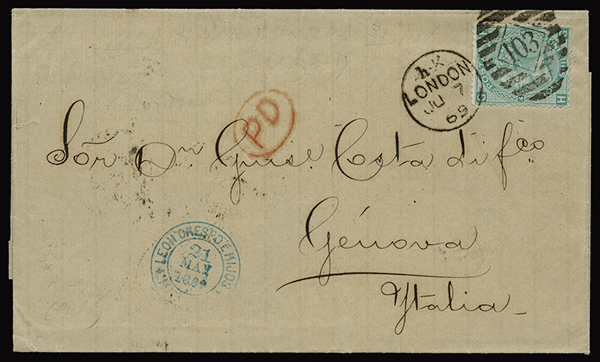 103
H
h·X
LONDON
JU 7
69
PD
Sõr Dn Guise Costa di fco
Génova
Ytalia
LEONo CRESPO É HIJOS
21
MAY